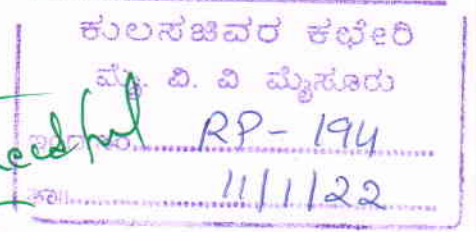 ಕುಲಸಚಿವರ ಕಛೇರಿ
ಮೈ. ವಿ. ವಿ ಮೈಸೂರು
RP - 194
11/1/22